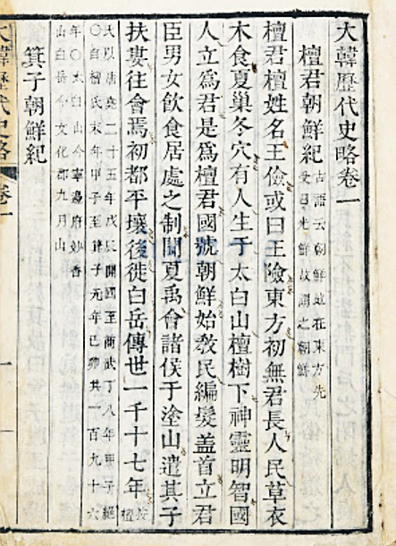 大韓歷代史略卷一
檀君朝鮮紀 古語云朝鮮地在東方先受日光鮮故謂之朝鮮
檀君檀姓名王儉或曰王險東方初無君長人民草衣
木食夏巢冬穴有人生于太白山檀樹下神靈明智國
人立爲君是爲檀君國號朝鮮始敎民編髮盖首立君
臣男女飮食居處之制聞夏禹會諸侯于塗山遣其子
扶婁往會焉初都平壤後徙白岳傳世一千十七年 按檀
氏以唐堯二十五年戊辰開國至商武丁八年甲子絕
○自檀氏末年甲子至箕子元年己卯其一百九十六
年○太白山今寧邊府妙香
山白岳今文化郡九月山
箕子朝鮮紀
大韓歷代史略 卷一
一